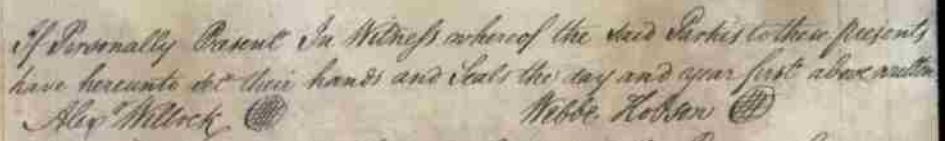 If Personally Present In Witness whereof the said Parties to these presents
have hereunto set their hands and Seals the day and year first above written
Alexr Willock Webbe Hobson